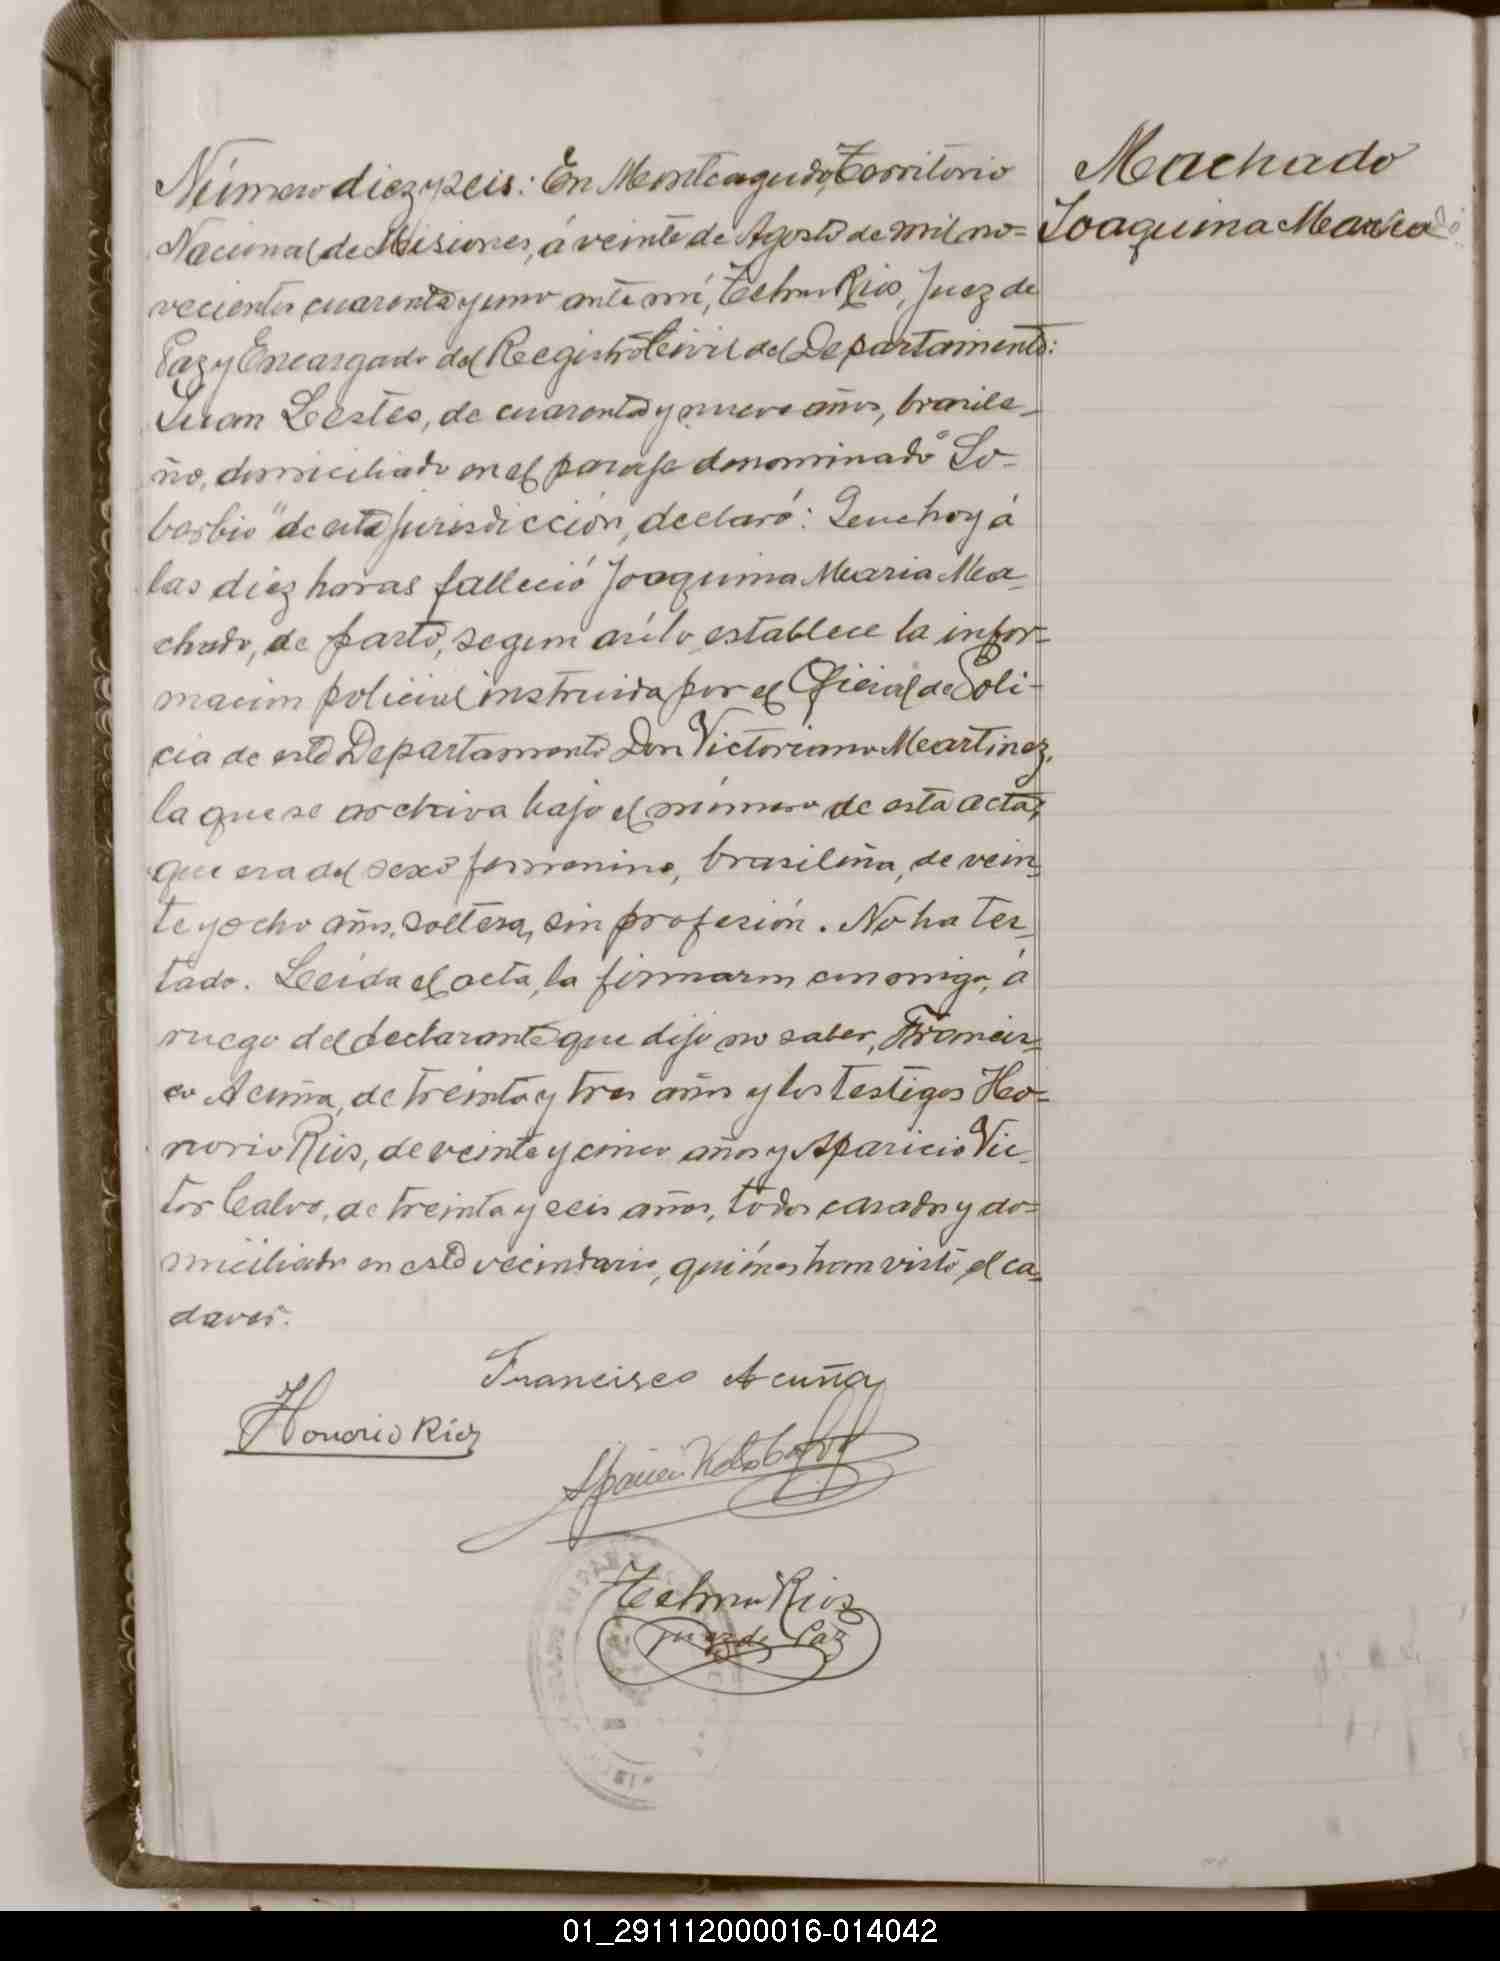 Número diez y seis: En Monteagudo, Territorio
Nacional de Misiones, á veinte de Agosto de mil no=
vecientos cuarenta y uno ante mí, Telmo Rios, Juez de
Paz y Encargado del Registro Civil del Departamento:
Juan Lestes, de cuarenta y nueve años, brasile-
ño, domiciliado en el paraje denominado "So-
berbio" de esta jurisdicción, declaró: Que hoy á
las diez horas falleció Joaquina Maria Ma-
chado, de parto, segun asi lo establece la infor=
macion policial instruida por el Oficial de Poli-
cia de este Departamento Don Victoriano Martinez,
la que se archiva bajo el número de esta acta;
que era del sexo femenino, brasileña, de vein-
te y ocho años, soltera, sin profesión. No ha tes-
tado. Leída el acta, la firmaron conmigo, á
ruego del declarante que dijo no saber, Francis=
co Acuña, de treinta y tres años y los testigos Ho=
norio Rios, de veinte y cinco años y Aparicio Vic-
tor Calvo, de treinta y seis años, todos casados y do=
miciliado en este vecindario, quiénes han visto el ca-
daver.
Francisco Acuña
Honorio Rios
Telmo Rios
Juez de Paz
Machado
Joaquina Maria
01_291112000016-014042